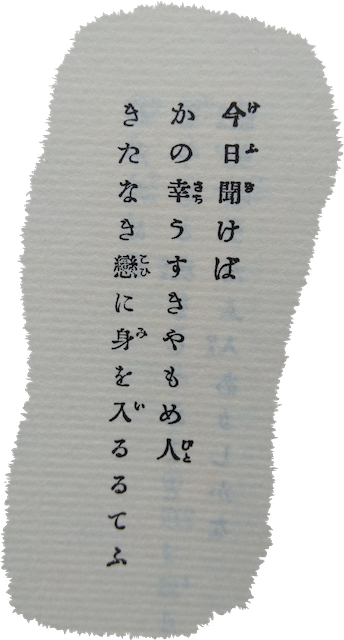 今日聞けば
かの幸うすきやもめ人
きたなき戀に身を入るるてふ